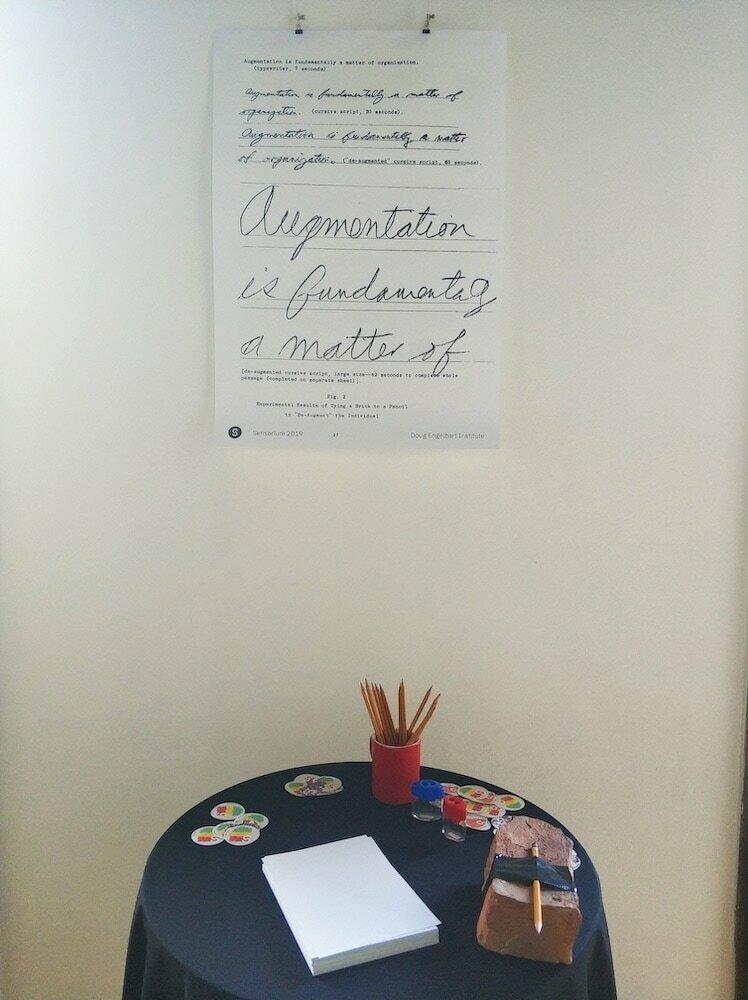 Augmentation is fundamentally a matter of organization.
(typewriter, 7 seconds)
Augmentation is fundamentally a matter of
organization. (cursive script, 20 seconds).
Augmentation is fundamentally a matter
of organization. ("de-augmented" cursive script, 65 seconds).
Augmentation
is fundamentally
a matter of
[de-augmented cursive script, large size--42 seconds to complete whole
passage (completed on separate sheet)].
Fig. 2
Experimental Results of Tying a Brick to a Pencil
to "De-Augment" the Individual
S Sensorium 2019 27 Doug Engelbart Institute